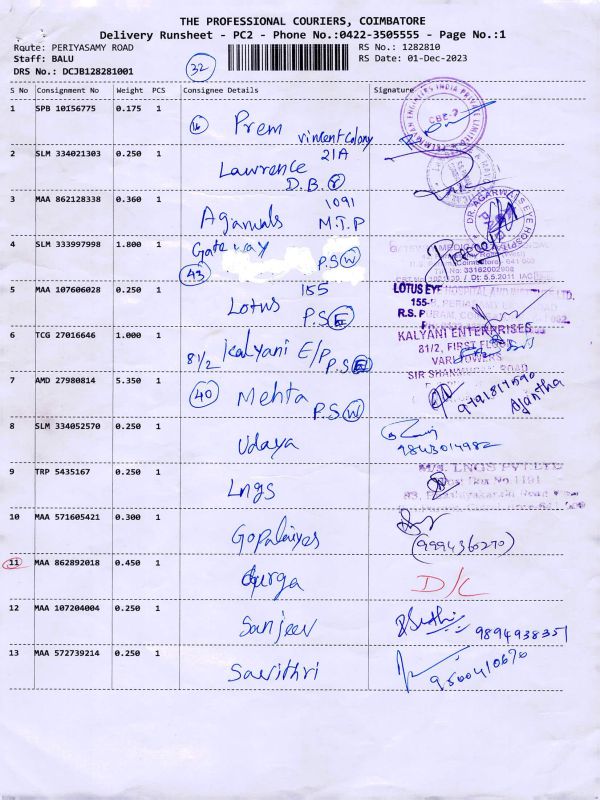 THE PROFESSIONAL COURIERS, COIMBATORE
Delivery Runsheet - PC2 - Phone No.:0422-3505555 - Page No.:1
Route: PERIYASAMY ROAD
RS No.: 1282810
Staff: BALU
RS Date: 01-Dec-2023
DRS No.: DCJB128281001
32
S No Consignment No Weight PCS Consignee Details Signature
1 SPB 10156775 0.175 1 Prem
Vincent Colony
2 SLM 334021303 0.250 1 Lawrence 21A
D.B.
3 MAA 862128338 0.360 1 Agarwals 1091
M.T.P
DR. AGARWAL'S EYE HOSPITAL
4 SLM 333997998 1.800 1 Gateway
43 P.S W
5 MAA 107606028 0.250 1 Lotus 155
P.S E
LOTUS EYE HOSPITAL
R.S. PURAM
6 TCG 27016646 1.000 1 81/2 Kalyani E/P
P.S E
KALYANI ENTERPRISES
81/2, FIRST FLOOR
7 AMD 27980814 5.350 1 40 Mehta
P.S W
9791817590
Ajantha
8 SLM 334052570 0.250 1 Udaya
9843014982
9 TRP 5435167 0.250 1 Lngs
M/S. LNGS PVT LTD
Post Box No.1191
10 MAA 571605421 0.300 1 Gopalaiyes
(9994360270)
11 MAA 862892018 0.450 1 durga D/L
12 MAA 107204004 0.250 1 Sanjeev
9894938351
13 MAA 572739214 0.250 1 Savithri
9500410670